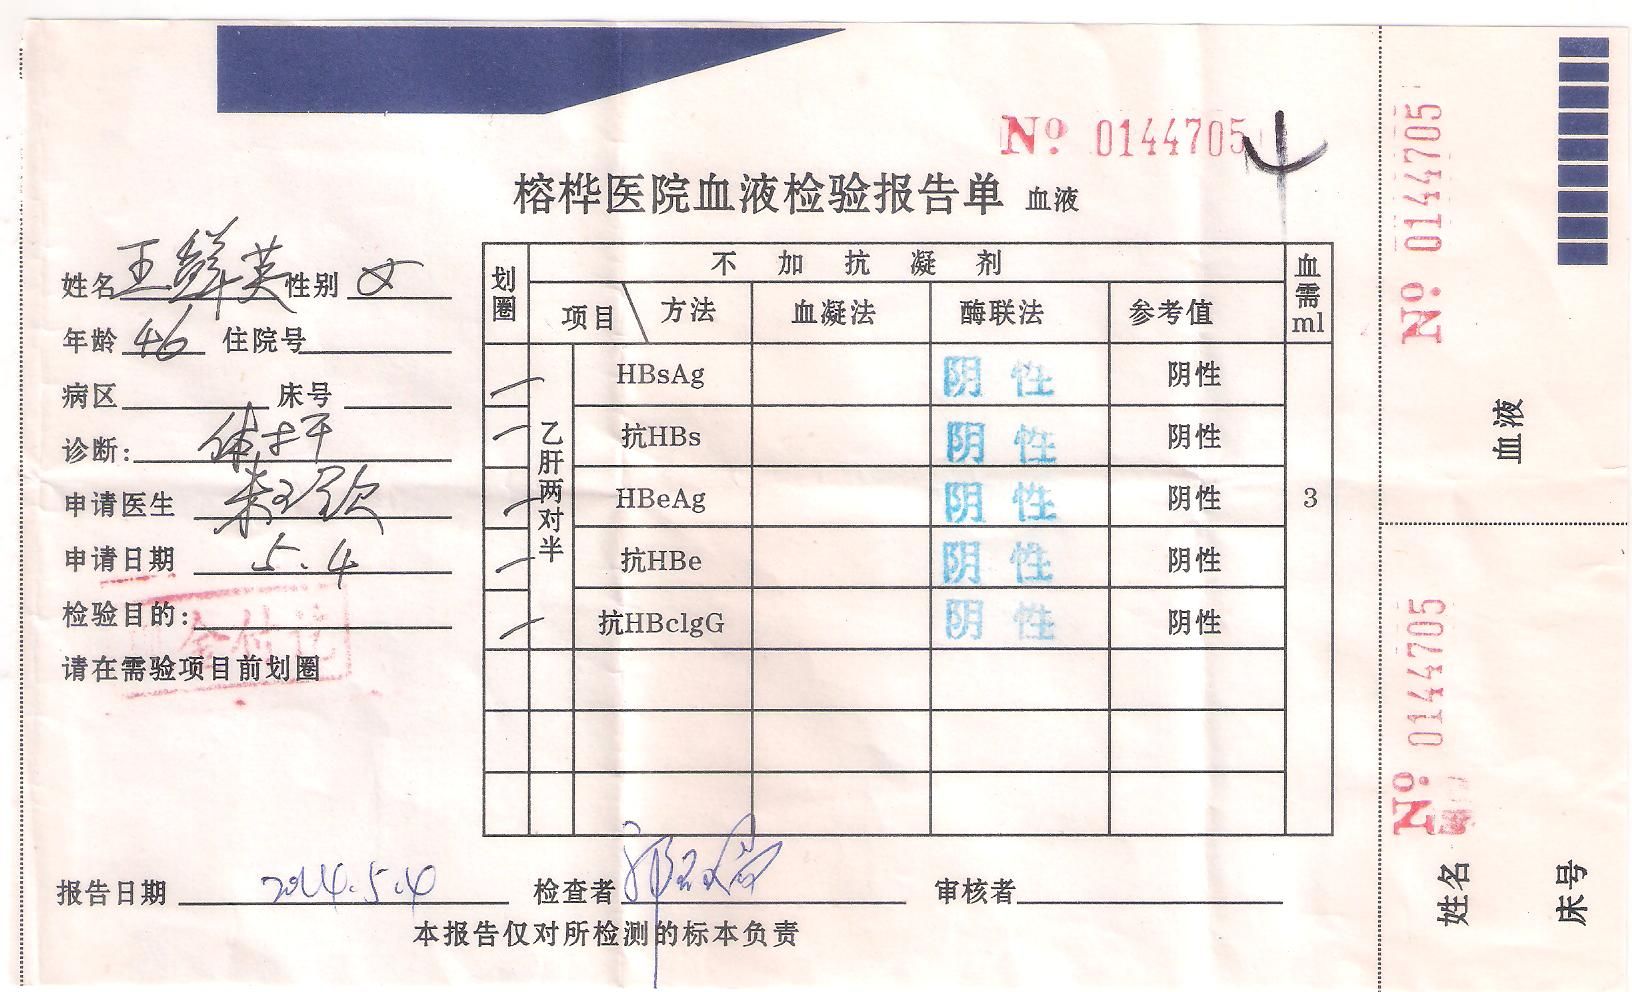 No. 0144705
榕桦医院血液检验报告单 血液
姓名 王 英 性别 女
年龄 46 住院号
病区 床号
诊断: 体检
申请医生
申请日期 5.4
检验目的:
请在需验项目前划圈
划圈 不加抗凝剂 血需ml
项目 方法 血凝法 酶联法 参考值
乙肝两对半
HBsAg 阴性 阴性
抗HBs 阴性 阴性
HBeAg 阴性 阴性 3
抗HBe 阴性 阴性
抗HBclgG 阴性 阴性
报告日期 2014.5.4 检查者 审核者
本报告仅对所检测的标本负责
No. 0144705
血液
No. 0144705
姓名
床号